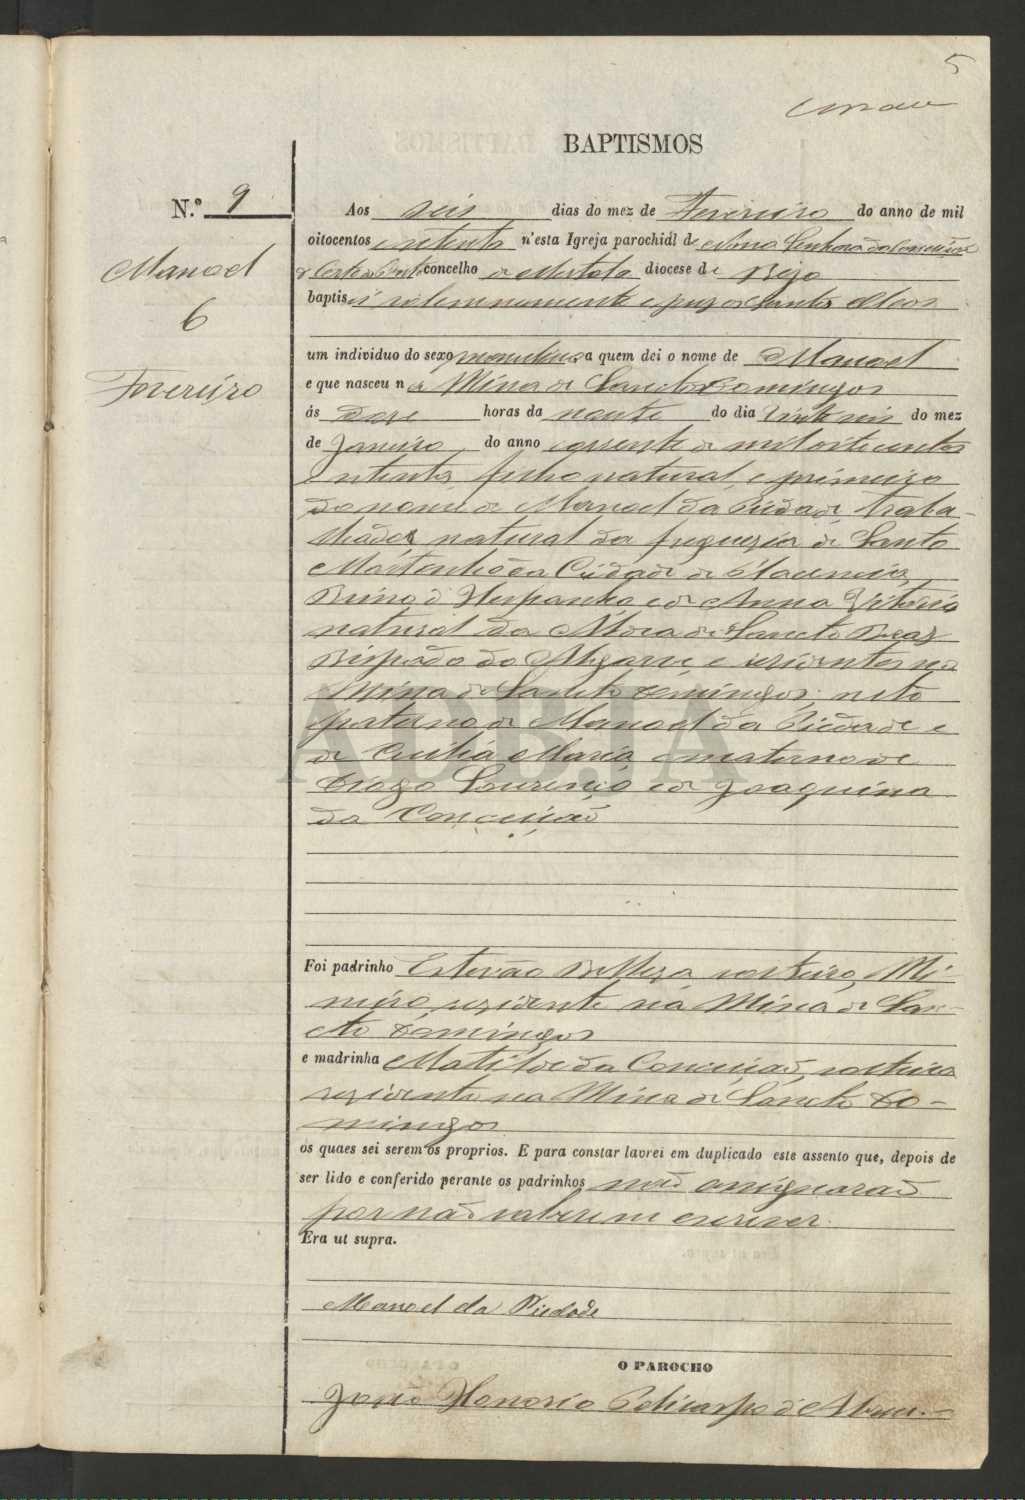 5
BAPTISMOS
N.º 9
Manoel
6
Fevereiro
Aos seis dias do mez de Fevereiro do anno de mil
oitocentos e oitenta n'esta Igreja parochial de Nossa Senhora da Conceição
concelho de Mertola diocese de Beja
baptisei solemnemente e puz os Santos Oleos
um individuo do sexo masculino a quem dei o nome de Manoel
e que nasceu na Mina de Sancto Domingos
ás doze horas da noute do dia vinte seis do mez
de Janeiro do anno corrente de mil oitocentos
e oitenta, filho natural, e primeiro
do nome de Manoel da Piedade, traba-
lhador natural da freguezia de Santo
Cidade de Placencia
Reino d'Hespanha e de Anna Victoria
natural da de Sancto Braz
Bispado do Algarve e residentes na
Mina de Sancto Domingos: neto
paterno de Manoel da Piedade e
de Maria, e materno de
Diogo Lourenço e de Joaquina
da Conceição
ADBJA
Foi padrinho Estevão solteiro, Mi-
neiro, residente na Mina de San-
cto Domingos
e madrinha Matilde da Conceição, solteira
residente na Mina de Sancto Do-
mingos
os quaes sei serem os proprios. E para constar lavrei em duplicado este assento que, depois de
ser lido e conferido perante os padrinhos não assignarão
por não saberem escrever.
Era ut supra.
Manoel da Piedade
O PAROCHO
João Honorio Policarpo d'Abreu.